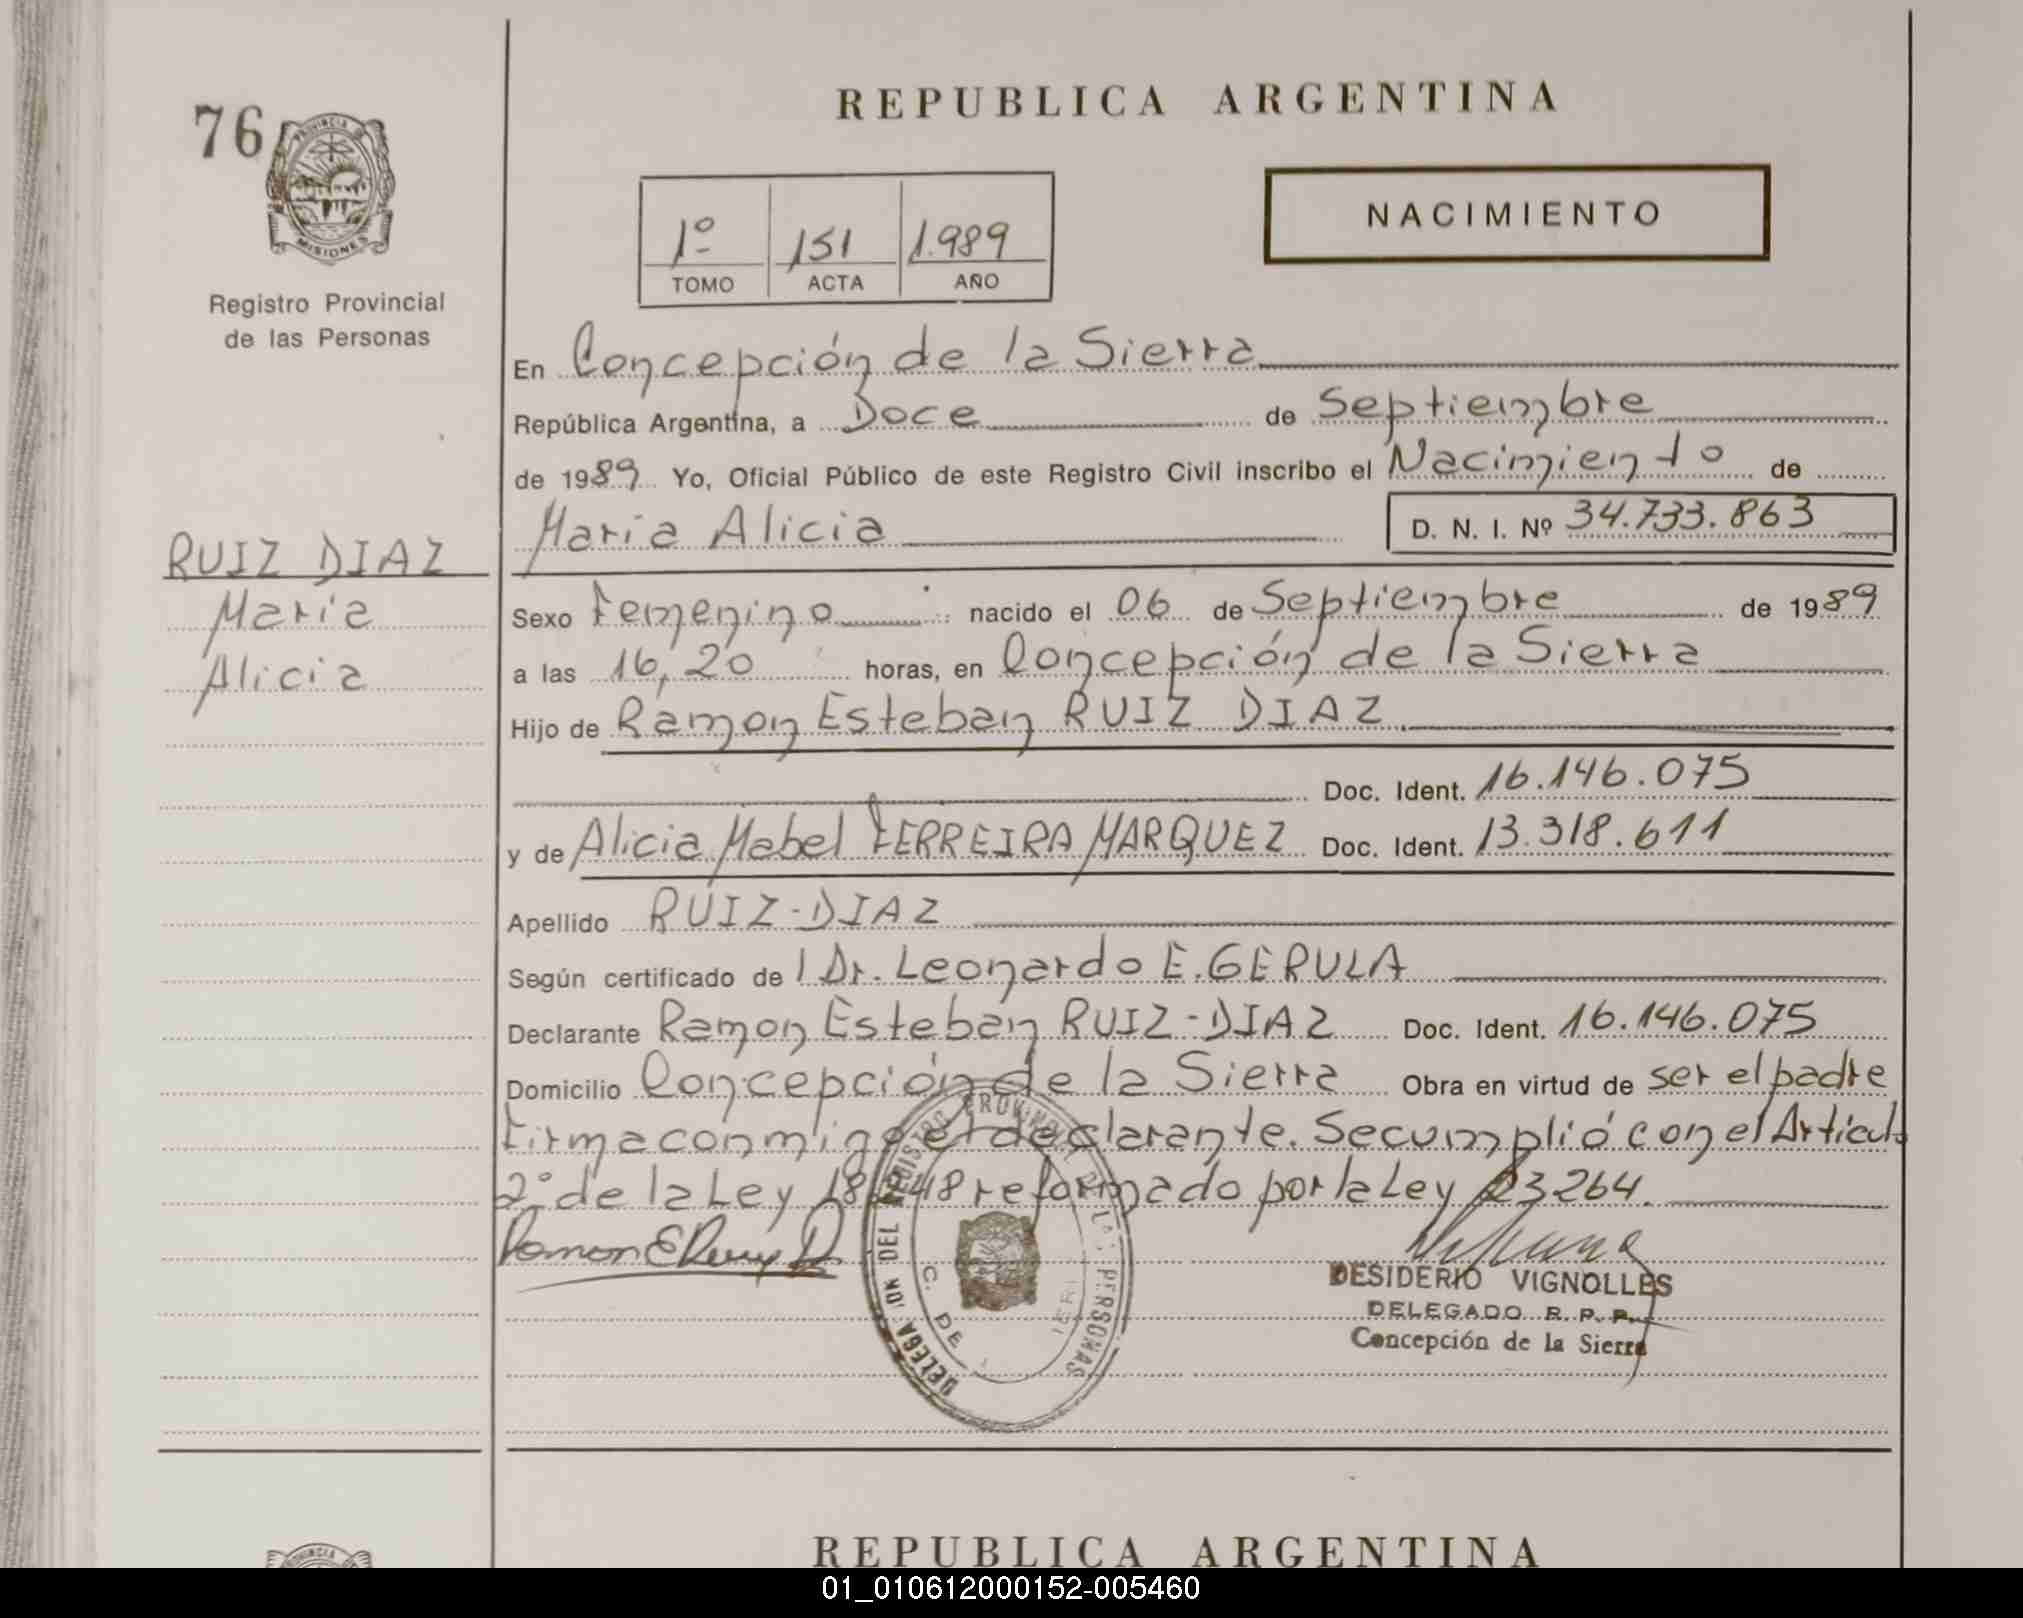 REPUBLICA ARGENTINA
76
PROVINCIA DE
MISIONES
Registro Provincial
de las Personas
NACIMIENTO
1º 151 1.989
TOMO ACTA AÑO
En Concepción de la Sierra
República Argentina, a Doce de Septiembre
de 1989 Yo, Oficial Público de este Registro Civil inscribo el Nacimiento de
Maria Alicia D. N. I. Nº 34.733.863
RUIZ DIAZ
Maria
Alicia
Sexo Femenino nacido el 06 de Septiembre de 1989
a las 16,20 horas, en Concepción de la Sierra
Hijo de Ramon Esteban RUIZ DIAZ
Doc. Ident. 16.146.075
y de Alicia Mabel FERREIRA MARQUEZ Doc. Ident. 13.318.611
Apellido RUIZ-DIAZ
Según certificado de l Dr. Leonardo E. GERULA
Declarante Ramon Esteban RUIZ-DIAZ Doc. Ident. 16.146.075
Domicilio Concepción de la Sierra Obra en virtud de ser el padre
Firma conmigo el declarante. Se cumplió con el Articulo
2º de la Ley reformado por la Ley 23264.
Ramon E
DELEGACION DEL REGISTRO PROVINCIAL DE LAS PERSONAS
C. DE
DESIDERIO VIGNOLLES
DELEGADO R. P. P.
Concepción de la Sierra
REPUBLICA ARGENTINA
01_010612000152-005460